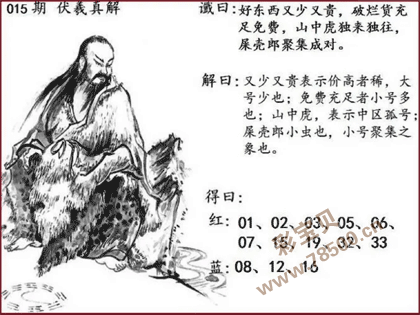 015期 伏羲真解
谶曰：好东西又少又贵，破烂货充
足免费，山中虎独来独往，
屎壳郎聚集成对。
解曰：又少又贵表示价高者稀，大
号少也；免费充足者小号多
也；山中虎，表示中区孤号；
屎壳郎小虫也，小号聚集之
象也。
得曰：
红：01、02、03、05、06、
07、15、19、32、33
蓝：08、12、16
彩宝贝
www.78500.cn